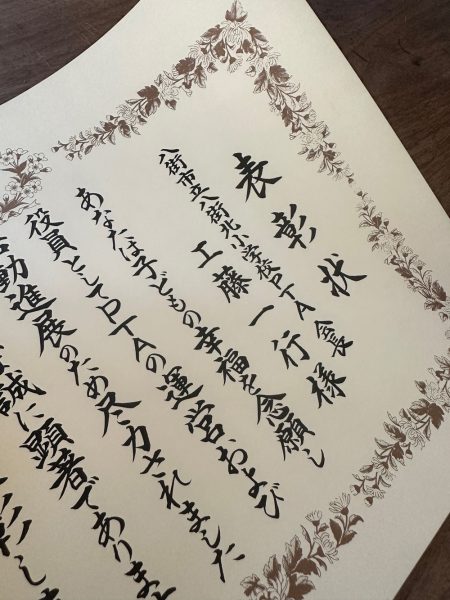 表彰状
八街市立八街北小学校PTA会長
工藤一行様
あなたは子どもの幸福を念願し
役員としてPTAの運営および
動進展のため尽力されました
誠に顕著でありま
彰しま